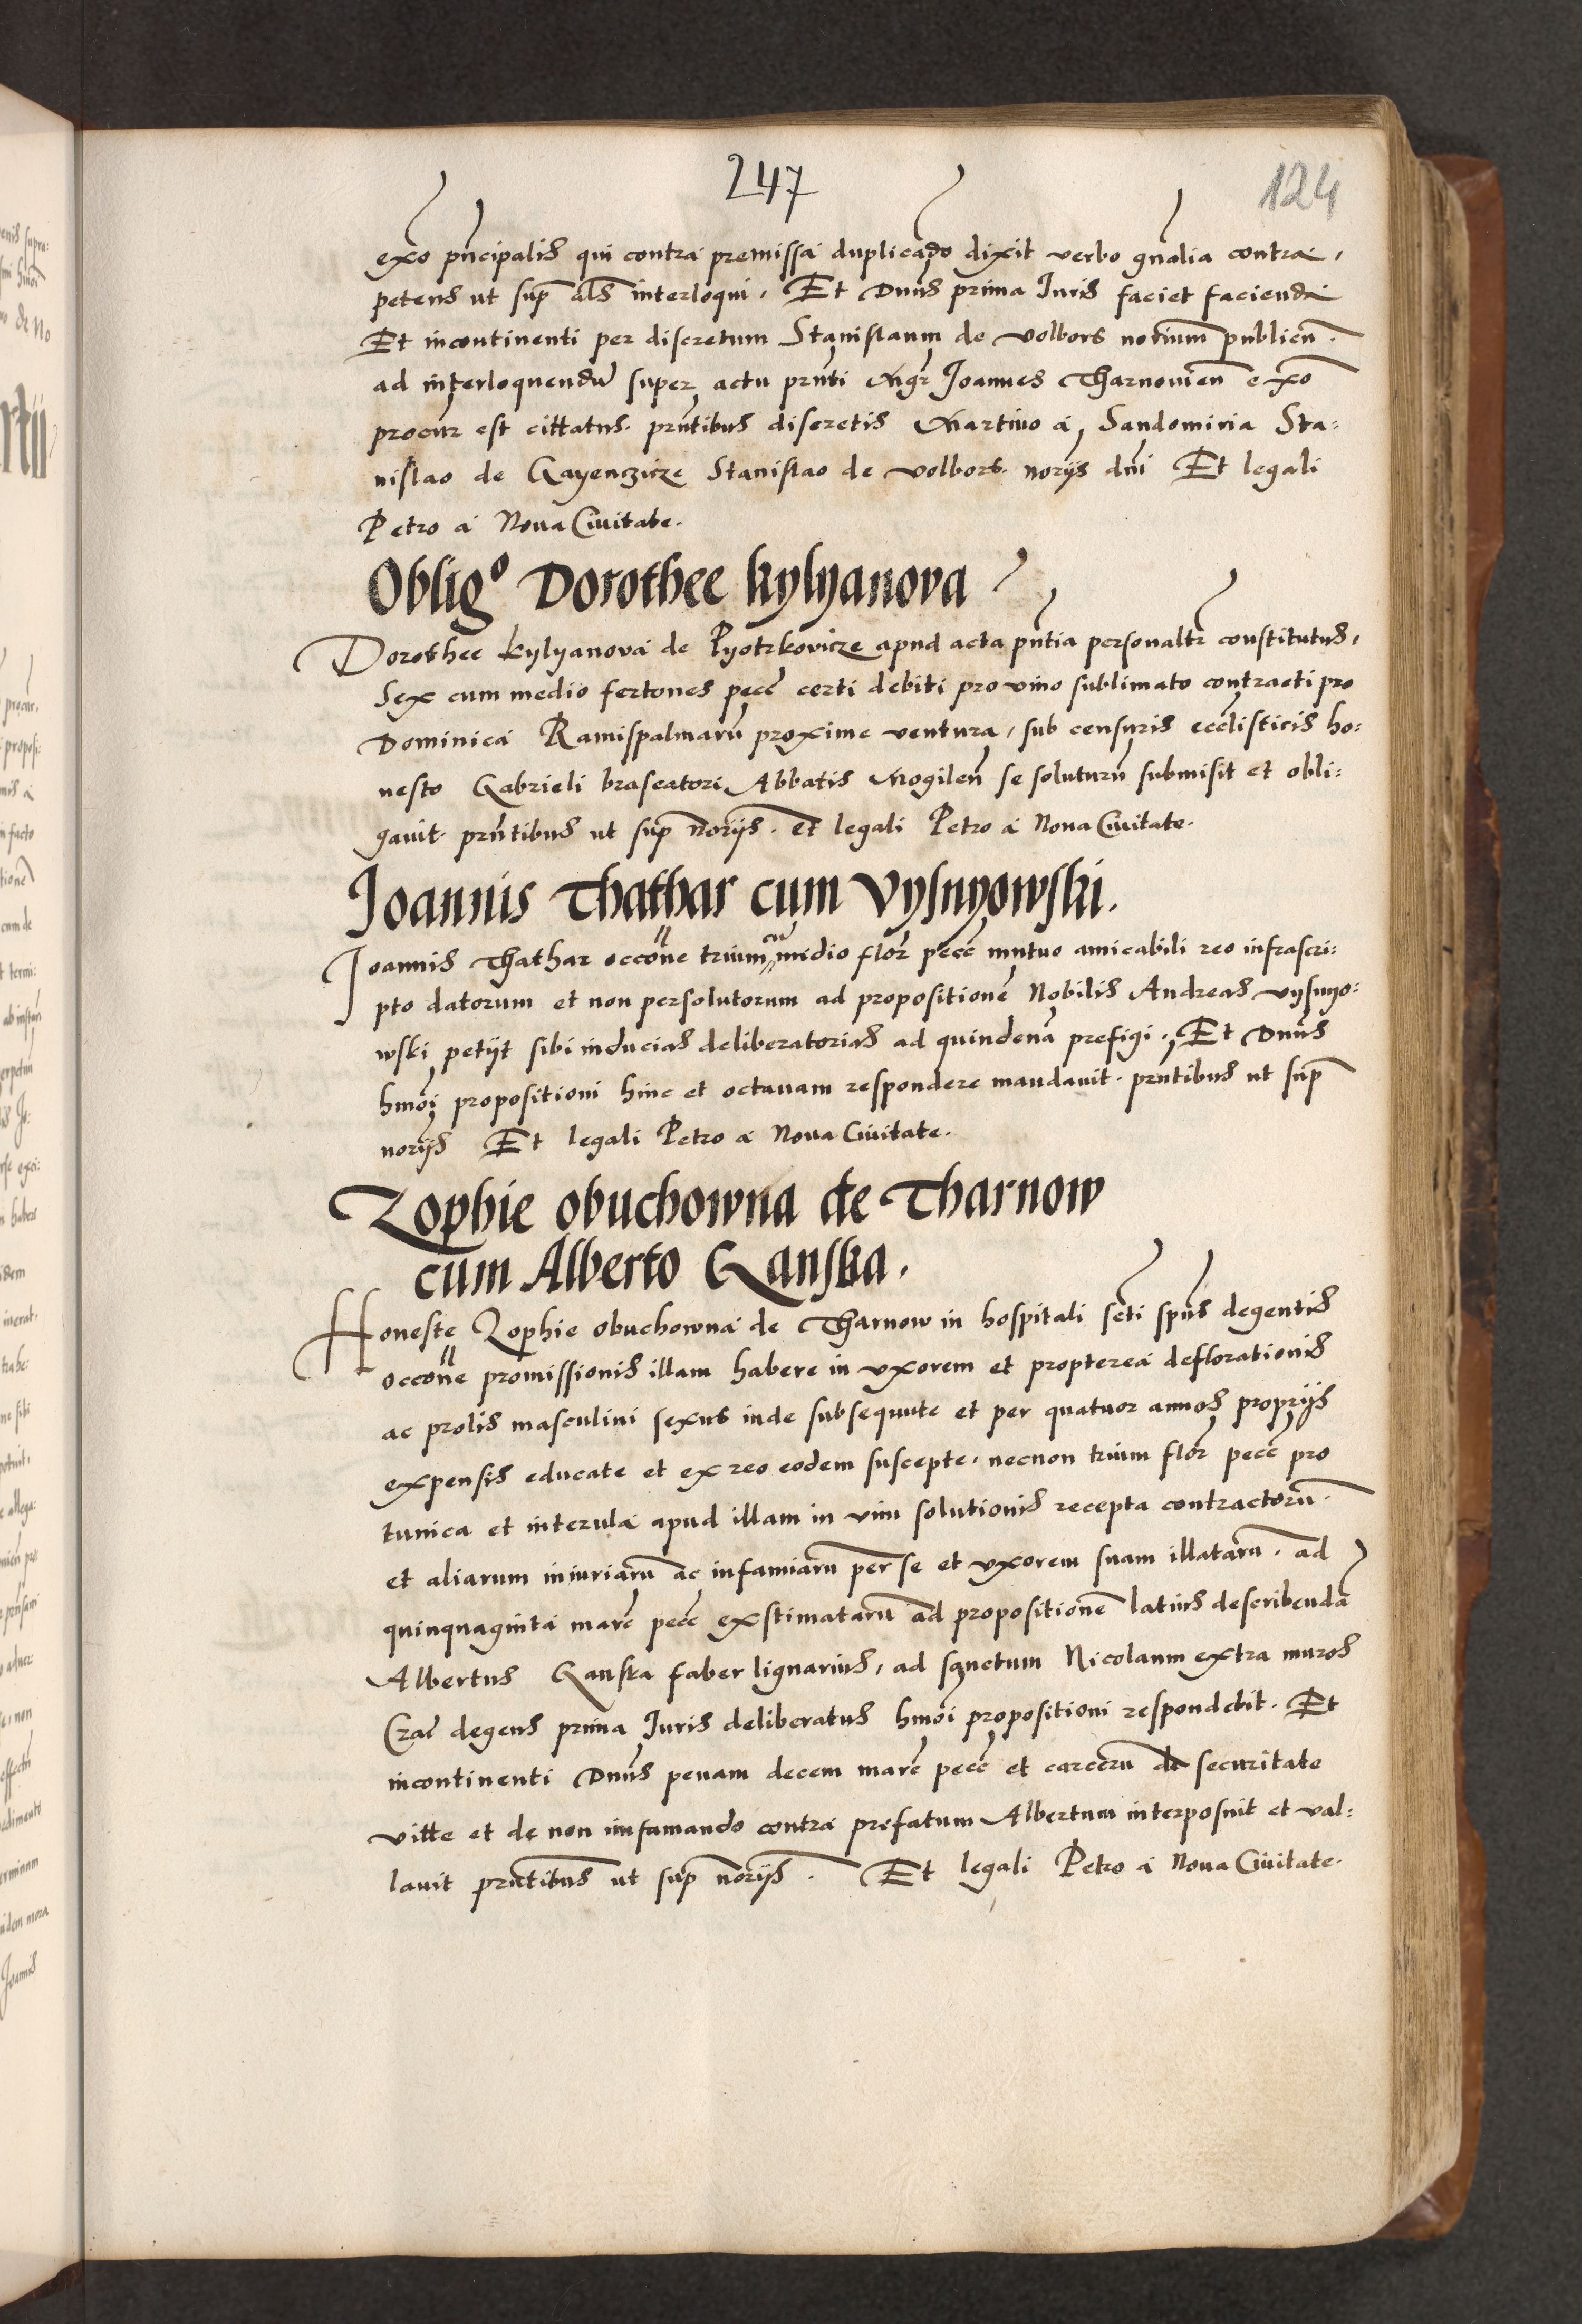 247
124
exo pncipalis qui contra premissa duplicado dixit verbo gnalia contra,
petens ut sup als interloqui, Et Dnus prima Iuris faciet facienda
Et incontinenti per discretum Stanislaum de Volbors norium publicu.
ad interloquendu super actu prnti Mgr Joannes Tharnouien exo
procur est cittatus. prntibus discretis Martino a Sandomiria Sta:
nislao de Gayenczicze Stanislao de Volbors. norijs dni Et legali
Petro a Noua Ciuitate.
Oblig° Dorothee kylyanova
Dorothee kylyanova de Pyotrkovicze apud acta pntia personaltr constitutus,
Sex cum medio fertones pecc certi debiti pro vino sublimato contracti pro
Dominica Ramispalmaru proxime ventura, sub censuris ecclisticis ho:
nesto Gabrieli braseatori Abbatis Mogilen se soluturu submisit et obli:
gauit. prntibus ut sup norijs. et legali Petro a Noua Ciuitate.
Joannis Thathar cum Vysnyowski.
Joannis Thathar occone trium cu medio flor pecc mutuo amicabili reo infrascri:
pto datorum et non persolutorum ad propositione Nobilis Andreas Vysnyo:
wski petijt sibi inducias deliberatorias ad quindena prefigi. Et Dnus
hmoi propositioni hinc et octauam respondere mandauit. prntibus ut sup
norijs Et legali Petro a Noua Ciuitate.
Zophie obuchowna de Tharnow
cum Alberto Ganska.
Honeste Zophie obuchowna de Tharnow in hospitali scti spus degentis
occone promissionis illam habere in vxorem et propterea deflorationis
ac prolis masculini sexus inde subsequute et per quatuor annos proprijs
expensis educate et ex reo eodem suscepte, necnon trium flor pecc pro
tunica et interula apud illam in vim solutionis recepta contractoru.
et aliarum iniuriaru ac infamiaru per se et vxorem suam illataru. ad
quinquaginta marc pecc exstimataru ad propositione latius describenda
Albertus Ganska faber lignarius, ad sanctum Nicolaum extra muros
Crac degens prima Iuris deliberatus hmoi propositioni respondebit. Et
incontinenti Dnus penam decem marc pecc et carceru de securitate
vitte et de non infamando contra prefatum Albertum interposuit et val:
lauit prntibus ut sup norijs. Et legali Petro a Noua Ciuitate.